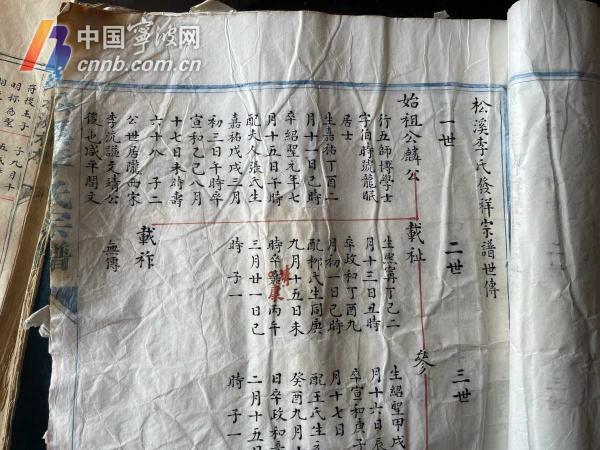 中国宁波网
cnnb.com.cn
松溪李氏發祥宗譜世傳
一世
始祖公麟公
行五師博學士
字伯時號龍眠
居士
生嘉祐丁酉二
月十一日己時
卒紹聖元年七
月十五日子時
配夫人張氏生
嘉祐戊戌三月
初三日午時卒
宣和己己八月
十七日未時壽
六十八 子二
公世居隴西家
李沆諡文靖公
後也咸平間文
二世
載祉
生熙寧丁己二
月十三日丑時
卒政和丁酉九
月初一日己時
配柳氏生同庚
九月十五日未
時卒 丙午
三月廿一日己
時 子一
載祚
無傳
三世
生紹聖甲戌
月十六日辰
卒宣和庚子
月十七日
配王氏生
癸酉九月
日卒政和
二月十五日
時 子一
氏宗譜